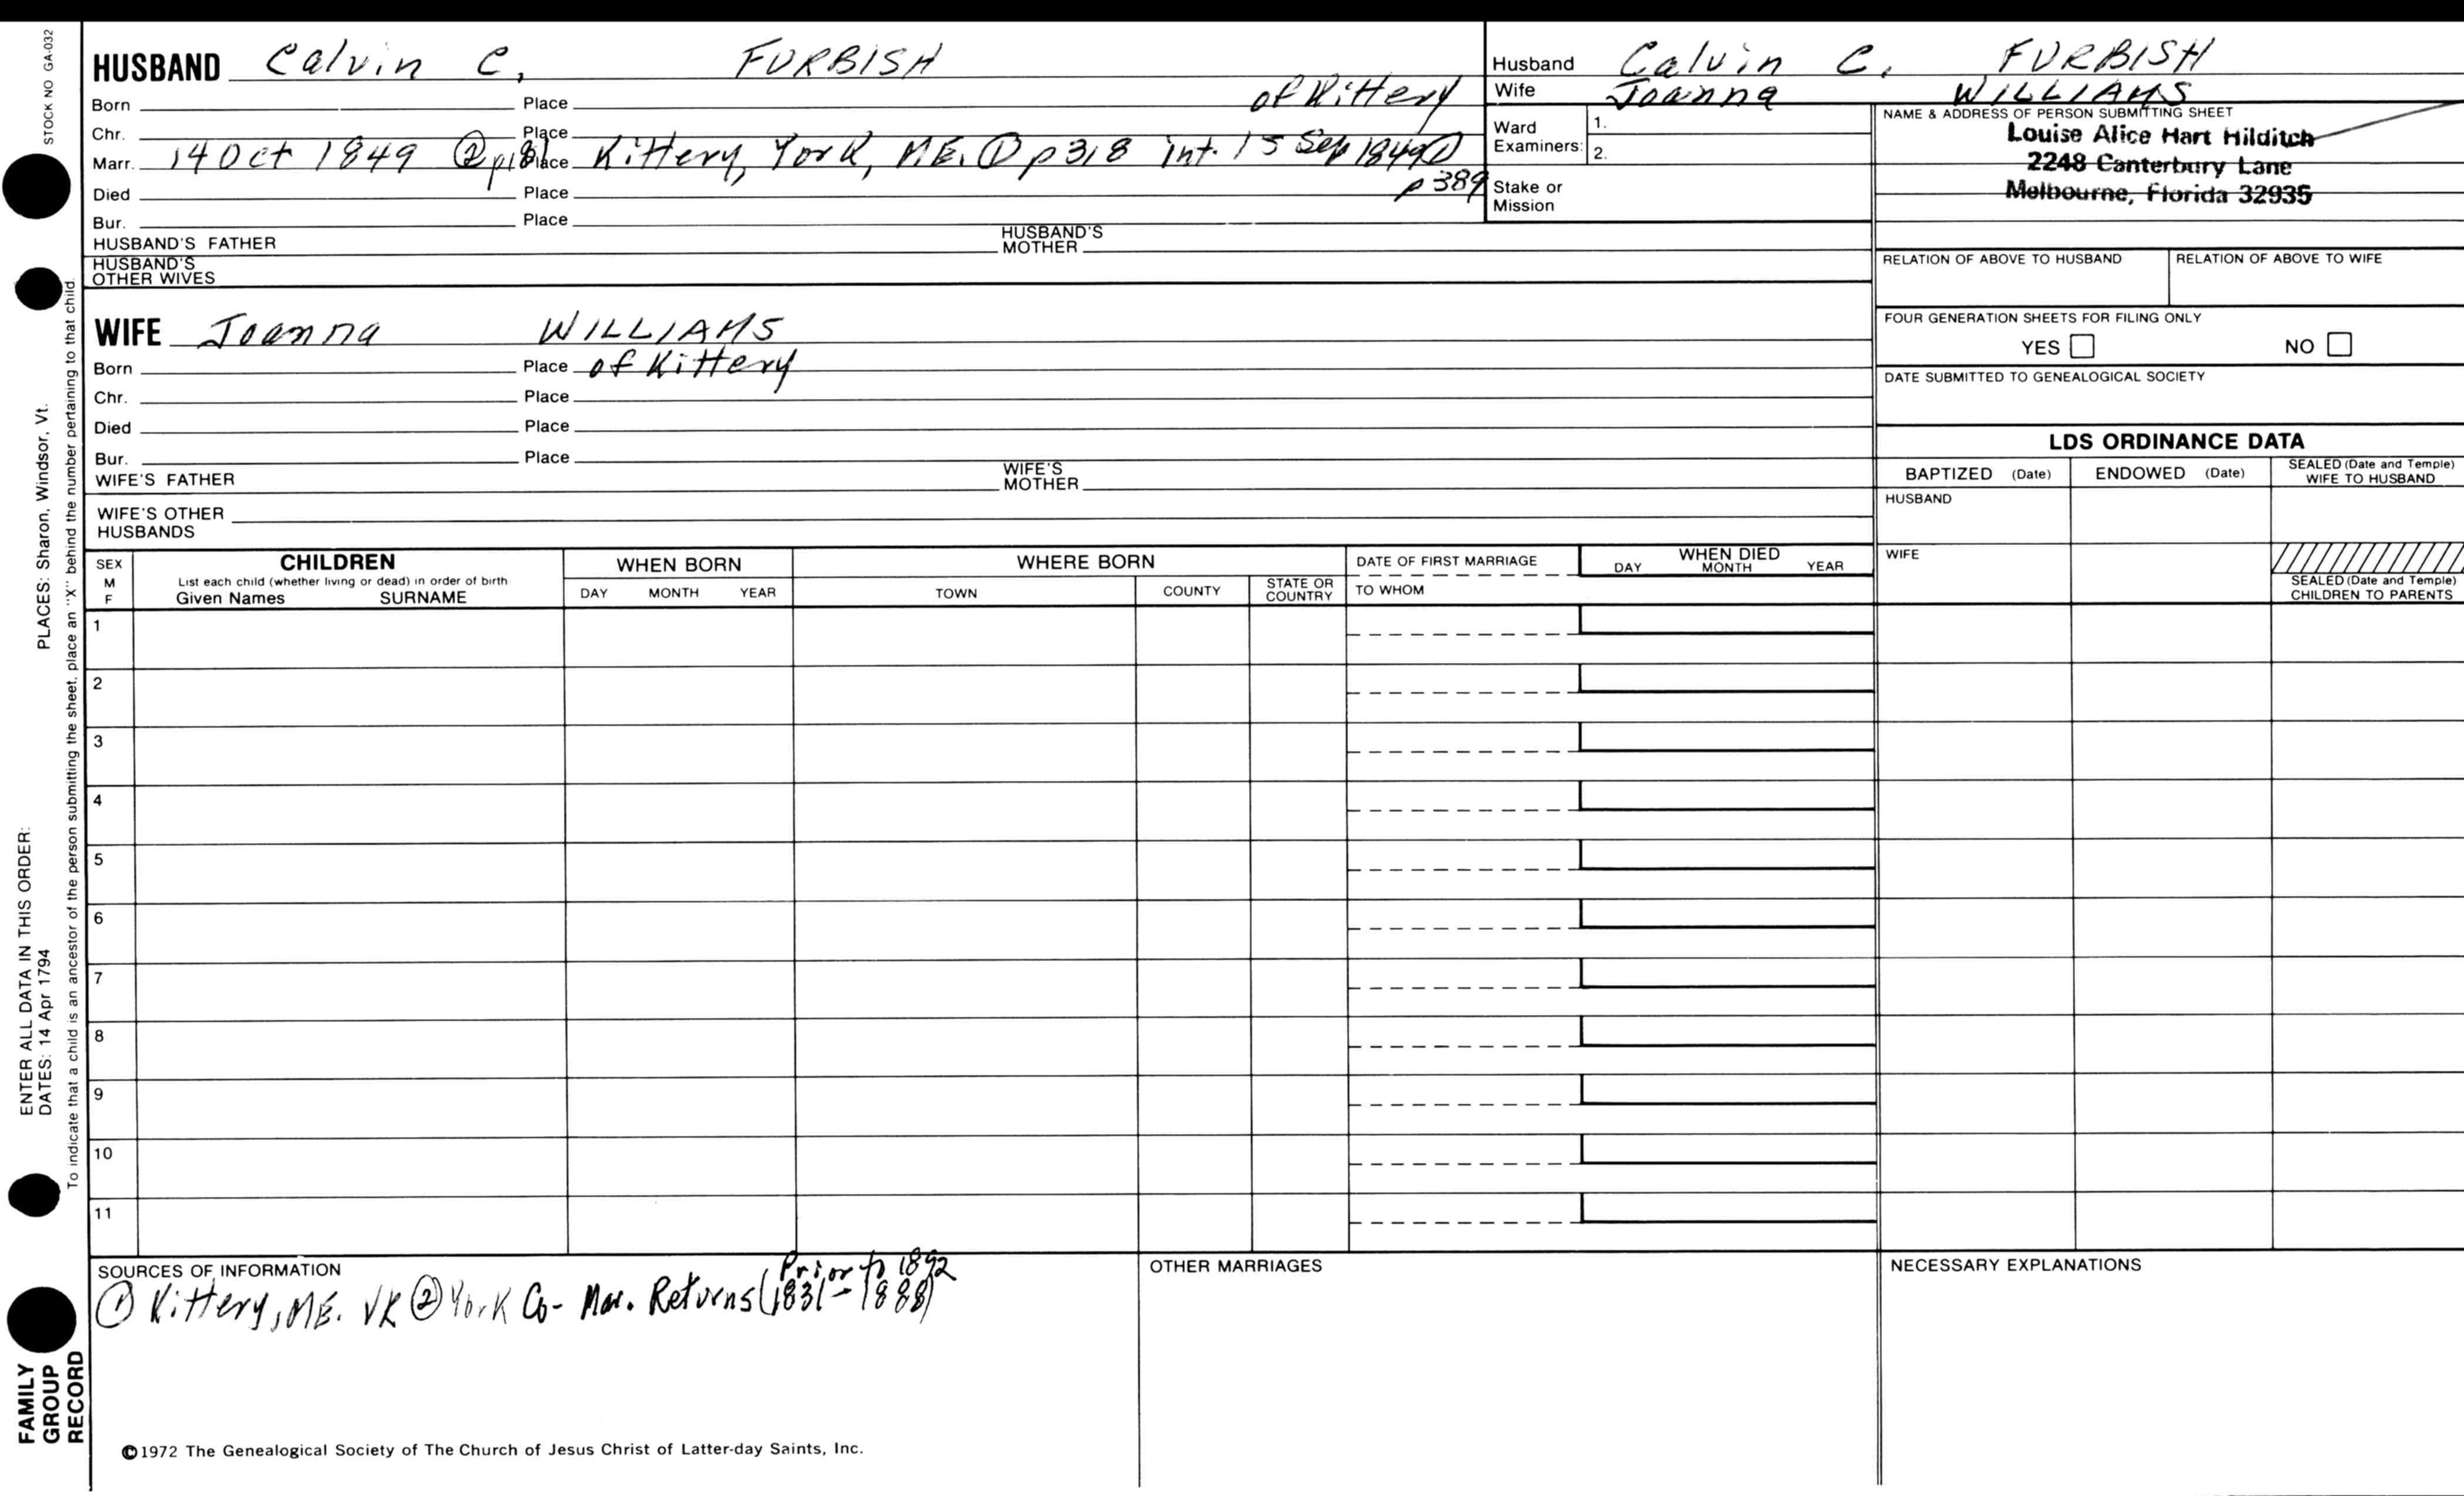 STOCK NO GA-032
HUSBAND Calvin C. FURBISH
Born Place of Kittery
Chr. Place
Marr. 14 Oct 1849 ② p181 Place Kittery, York, ME. ① p318 int. 15 Sep 1849 ①
p 389
Died Place
Bur. Place
HUSBAND'S FATHER HUSBAND'S MOTHER
HUSBAND'S
OTHER WIVES
WIFE Joanna WILLIAMS
Born Place of Kittery
Chr. Place
Died Place
Bur. Place
WIFE'S FATHER WIFE'S MOTHER
WIFE'S OTHER
HUSBANDS
Husband Calvin C. FURBISH
Wife Joanna WILLIAMS
Ward
Examiners: 1.
2.
Stake or
Mission
NAME & ADDRESS OF PERSON SUBMITTING SHEET
Louise Alice Hart Hilditch
2248 Canterbury Lane
Melbourne, Florida 32935
RELATION OF ABOVE TO HUSBAND RELATION OF ABOVE TO WIFE
FOUR GENERATION SHEETS FOR FILING ONLY
YES NO
DATE SUBMITTED TO GENEALOGICAL SOCIETY
LDS ORDINANCE DATA
BAPTIZED (Date) ENDOWED (Date) SEALED (Date and Temple)
WIFE TO HUSBAND
HUSBAND
WIFE
SEALED (Date and Temple)
CHILDREN TO PARENTS
SEX
M
F
CHILDREN
List each child (whether living or dead) in order of birth
Given Names SURNAME
WHEN BORN
DAY MONTH YEAR
WHERE BORN
TOWN COUNTY STATE OR COUNTRY
DATE OF FIRST MARRIAGE
TO WHOM
WHEN DIED
DAY MONTH YEAR
1
2
3
4
5
6
7
8
9
10
11
SOURCES OF INFORMATION
Prior to 1892
① Kittery, ME. VR ② York Co- Mar. Returns (1831-1888)
OTHER MARRIAGES
NECESSARY EXPLANATIONS
©1972 The Genealogical Society of The Church of Jesus Christ of Latter-day Saints, Inc.
ENTER ALL DATA IN THIS ORDER:
DATES: 14 Apr 1794 PLACES: Sharon, Windsor, Vt.
To indicate that a child is an ancestor of the person submitting the sheet, place an "X" behind the number pertaining to that child
FAMILY
GROUP
RECORD